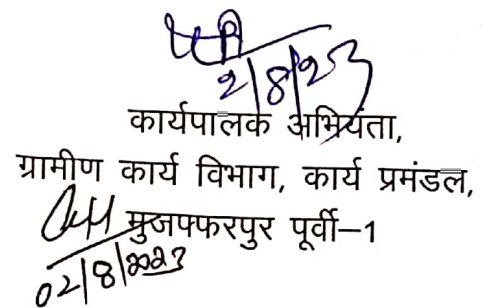 2/8/23
कार्यपालक अभियंता,
ग्रामीण कार्य विभाग, कार्य प्रमंडल,
मुजफ्फरपुर पूर्वी–1
02/8/2023